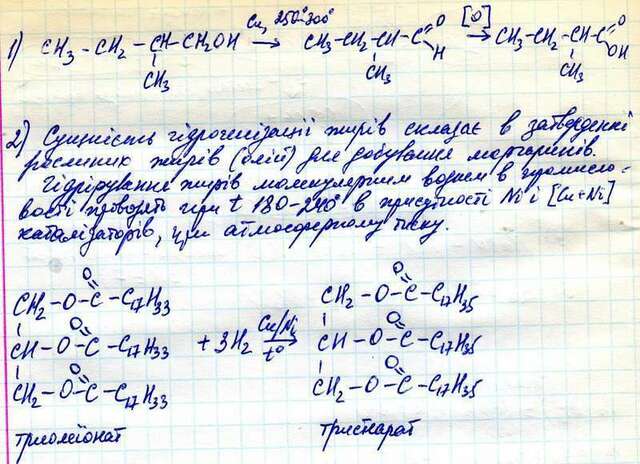 1) CH₃ – CH₂ – CH – CH₂OH →(Cu, 250°-300°) CH₃-CH₂-CH-C(=O)H →[O] CH₃-CH₂-CH-C(=O)OH
CH₃ CH₃ CH₃
2) Сущність гідрогенізації жирів складає в затвердінні
рослинних жирів (олій) для добування маргаринів.
Гідрірування жирів молекулярним воднем в промисло-
вості проводять при t 180-240° в присутності Ni і [Cu+Ni]
каталізаторів, при атмосферному тиску.
O O
CH₂ – O – C – C₁₇H₃₃ CH₂ – O – C – C₁₇H₃₅
O Cu/Ni O
CH – O – C – C₁₇H₃₃ + 3H₂ → CH – O – C – C₁₇H₃₅
O t° O
CH₂ – O – C – C₁₇H₃₃ CH₂ – O – C – C₁₇H₃₅